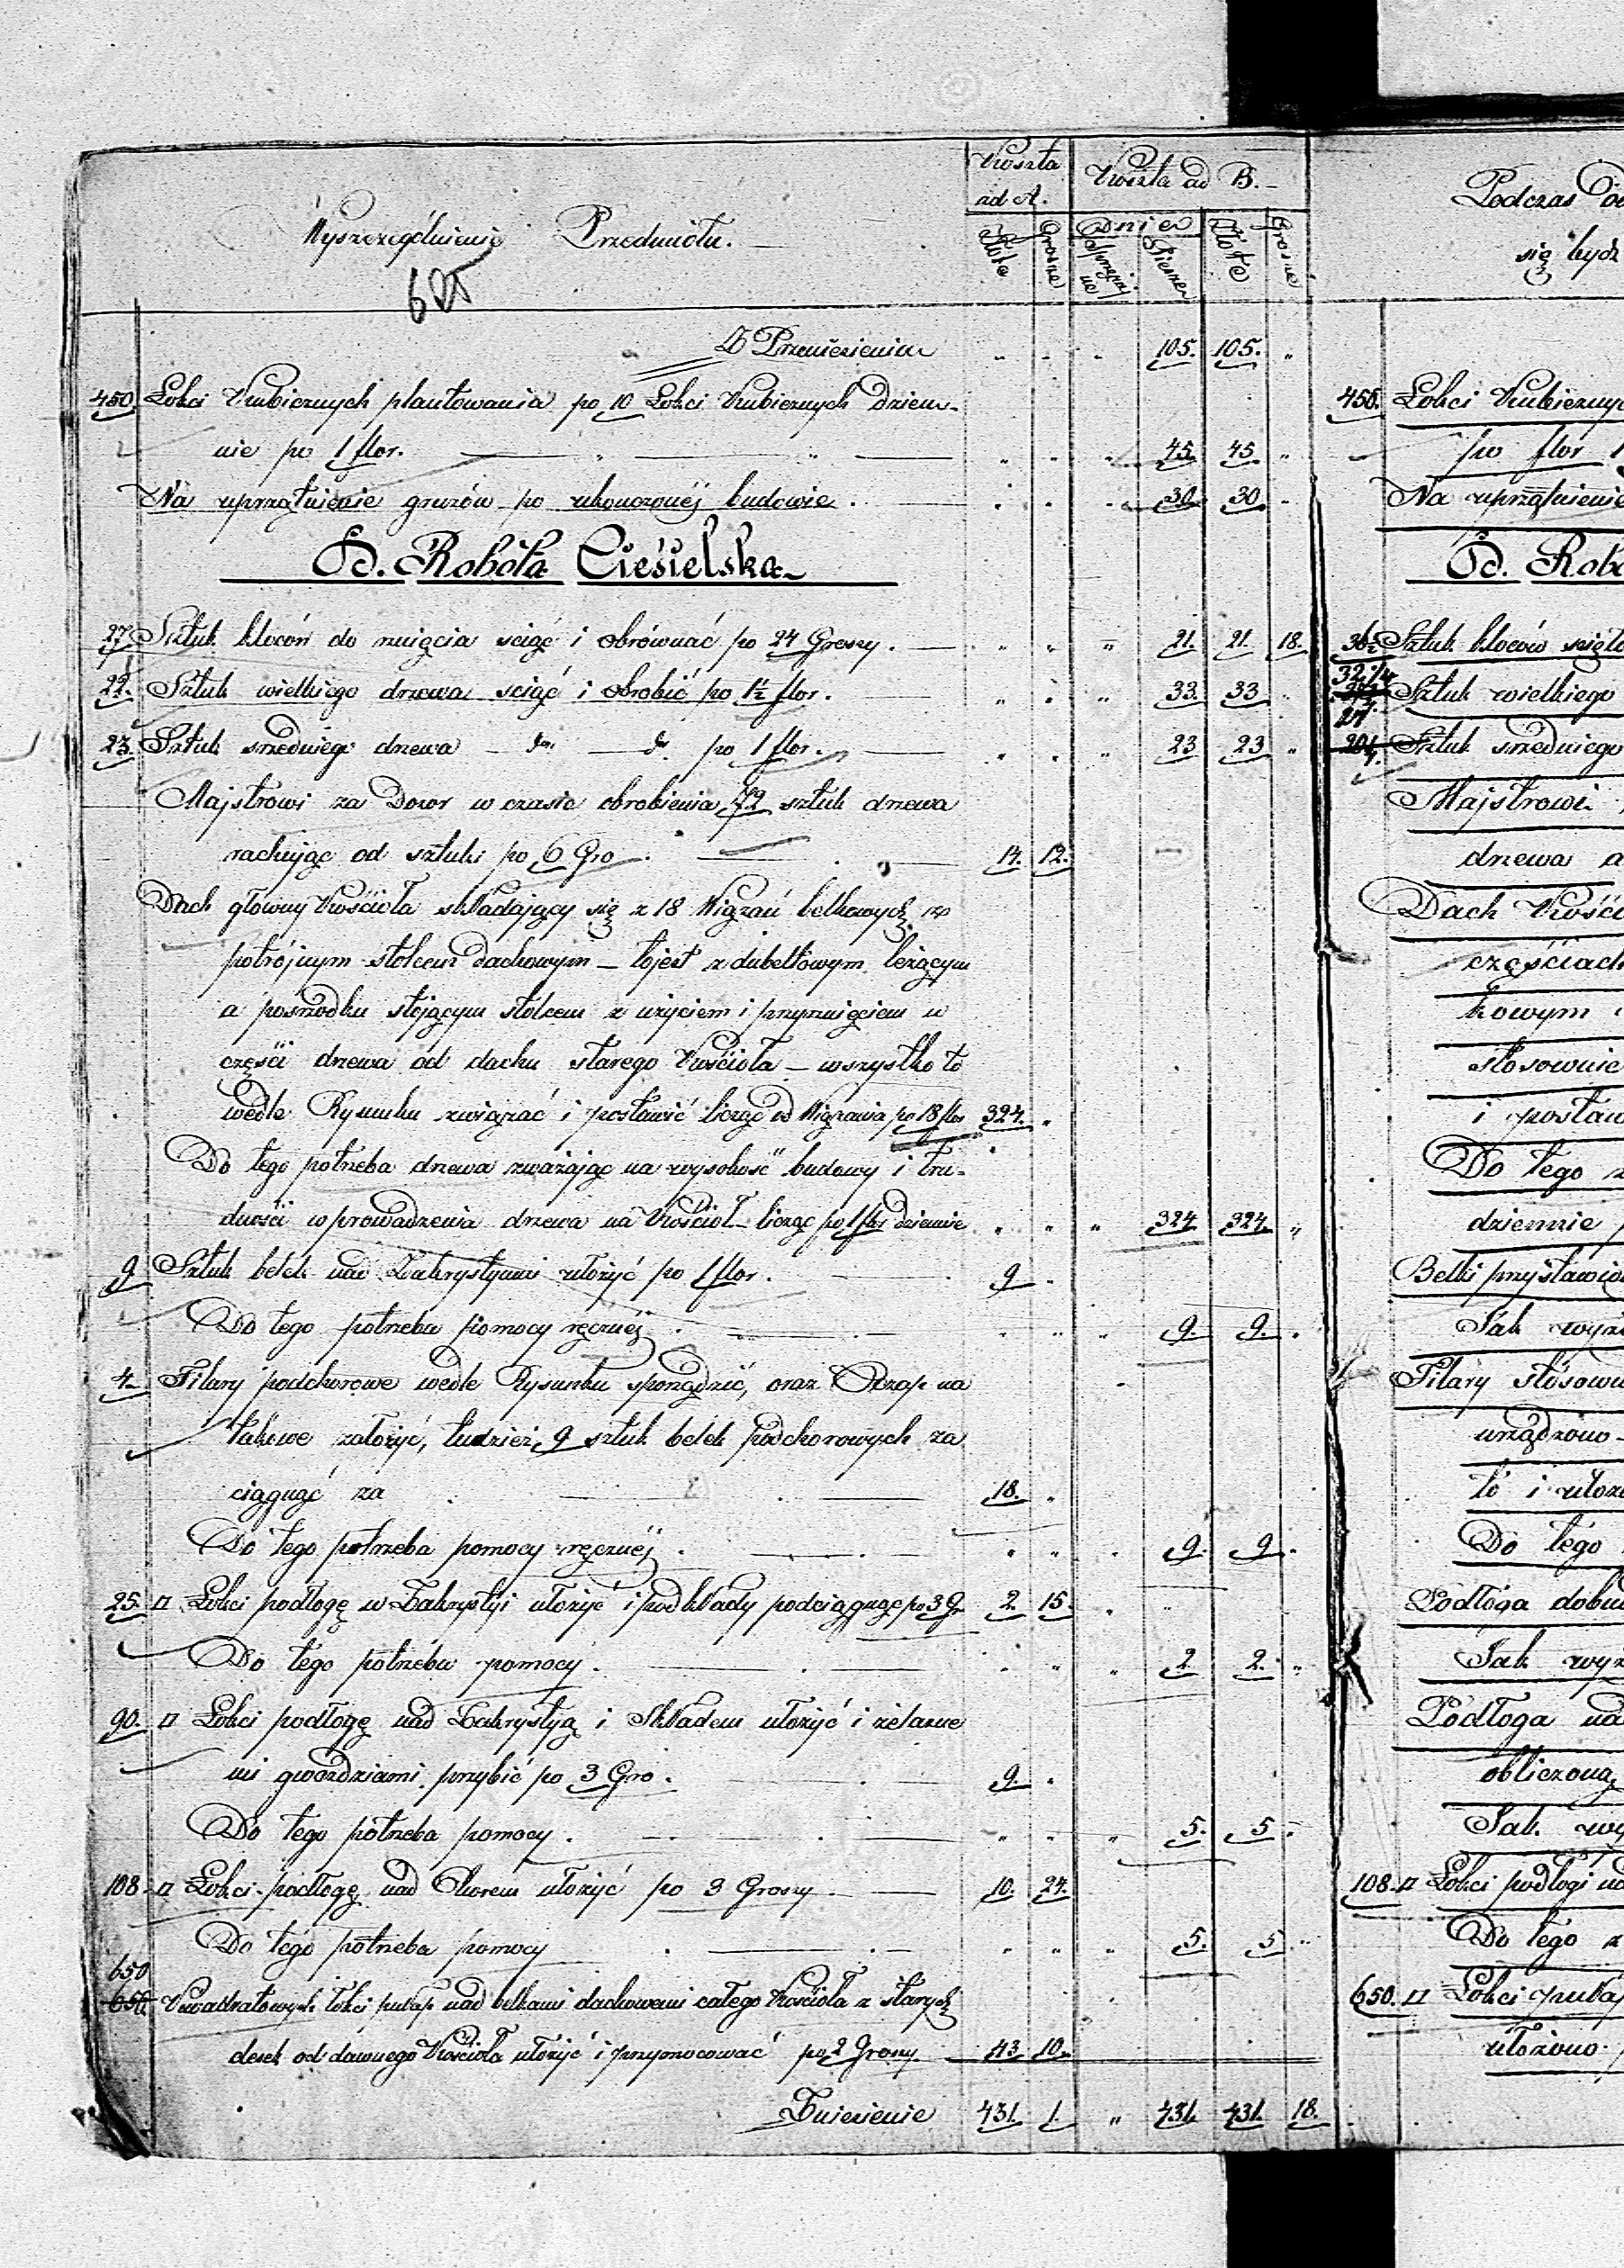 Wyszczególnienie Przedmiotu.
625
Koszta ad A.
Złote
Grosze
Koszta ad B.
Dnie
Sprzężaj
Piesze
Złote
Grosze
Z Przeniesienia " " " 105. 105. "
450 Łokci Kubicznych plantowania po 10 Łokci Kubicznych dzien-
nie po 1 flor. " " " 45. 45. "
Na uprzątnienie gruzów po ukończonéj budowie. " " " 30. 30 "
D. Robota Cieśielska
27 Sztuk kloców do rznięcia sciąć i obrównać po 24 Groszy. " " " 21. 21. 18.
22. Sztuk wielkiego drzewa sciąć i obrobić po 1½ flor. " " " 33. 33 "
23. Sztuk srzedniego drzewa do do po 1 flor. " " " 23 23 "
Majstrowi za Dozor w czasie obrobienia 72 sztuk drzewa
rachując od sztuki po 6 Gro. 14. 12.
Dach główny Kośćioła składający się z 18 Wiązań belkowych
potrójnym stolcem dachowym – tojest z dubeltowym leżącym
a posrzodku stojącym stolcem z użyciem i przyrznięciem w
częśći drzewa od dachu starego Kośćioła – wszystko to
wedle Rysunku związać i postawić licząc od Wiązania po 18 flor 324. "
Do tego potrzeba drzewa zważając na wysokość budowy i tru-
dnośći wprowadzenia drzewa na Kośćioł – licząc po 1 flor dziennie " " " 324 324. "
9 Sztuk belek nad Zakrystyami ułożyć po 1 flor. 9 "
Do tego potrzeba pomocy ręcznéj. " " " 9. 9. "
4. Filary podchorowe wedle Rysunku sporządzić, oraz na
takowe założyć, tudzież 9 sztuk belek podchorowych za
ciągnąć za 18. "
Do tego potrzeba pomocy ręcznéj. " " " 9. 9. "
25. □ Łokci podłogę w Zakrystyi ułożyć i podkłady podciągnąć po 3 Gr 2. 15.
Do tego potrzeba pomocy. " " " 2 2. "
90. □ Łokci podłogę nad Zakrystyą i Składem ułożyć i żelazne
mi gwoździami przybić po 3 Gro. 9. "
Do tego potrzeba pomocy. " " " 5. 5. "
108. □ Łokci podłogę nad Chorem ułożyć po 3 Groszy. 10. 24.
Do tego potrzeba pomocy " " " 5. 5 "
650
Kwadratowych łokci pułap nad belkami dachowemi całego Kośćioła z starych
desek od dawnego Kośćioła ułożyć i przymocować po 2 Groszy. 43 10.
Zniesienie 431. 1. " 431. 431. 18.
Podczas
się
450. Łokci Kubicznyc
po flor 1
Na uprzątnienie
D. Robo
36½ Sztuk kloców scięto
32¼ Sztuk wielkiego
21. Sztuk srzedniego
Majstrowi
drzewa a
Dach Kośći
częśćiach
kowym
stosownie
i postaw
Do tego
dziennie
Belki przystawio
Jak wyż
Filary stósow
urządzono
to i ułoż
Do tego
Podłoga dobu
Jak wyż
Podłoga na
obliczoną
Jak wy
108. □ Łokci podłogi na
Do tego z
650. □ Łokci pułap
ułożono